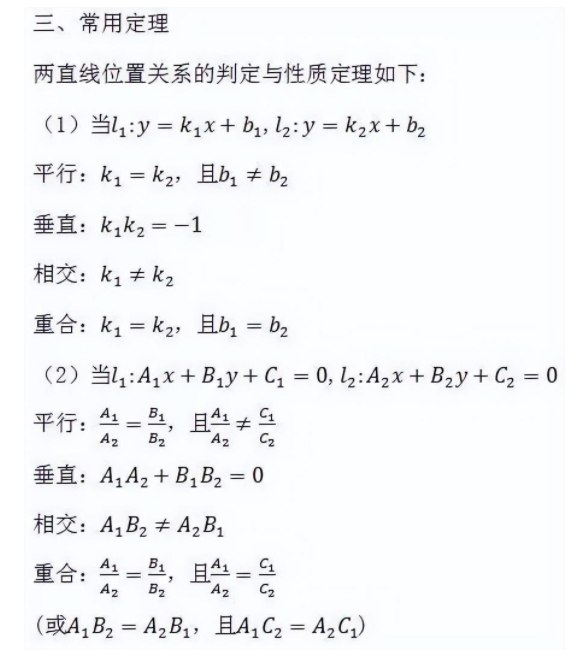 三、常用定理
两直线位置关系的判定与性质定理如下：
（1）当l₁:y = k₁x + b₁, l₂:y = k₂x + b₂
平行：k₁ = k₂，且b₁ ≠ b₂
垂直：k₁k₂ = −1
相交：k₁ ≠ k₂
重合：k₁ = k₂，且b₁ = b₂
（2）当l₁:A₁x + B₁y + C₁ = 0, l₂:A₂x + B₂y + C₂ = 0
平行：A₁/A₂ = B₁/B₂，且A₁/A₂ ≠ C₁/C₂
垂直：A₁A₂ + B₁B₂ = 0
相交：A₁B₂ ≠ A₂B₁
重合：A₁/A₂ = B₁/B₂，且A₁/A₂ = C₁/C₂
(或A₁B₂ = A₂B₁，且A₁C₂ = A₂C₁)